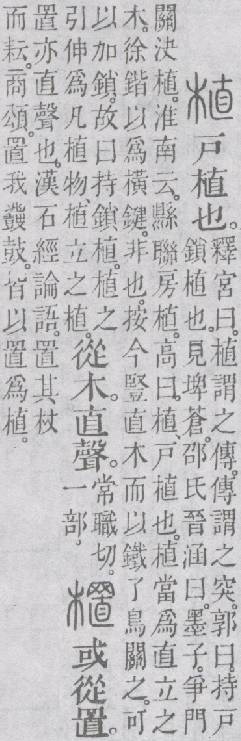 植 戶植也。釋宮曰。植謂之傳。傳謂之突。郭曰。持戶
鎖植也。見埤蒼。邵氏晉涵曰。墨子。爭門
關決植。淮南云。縣聯房植。高曰。植、戶植也。植當爲直立之
木。徐鍇以爲橫鍵。非也。按今豎直木而以鐵了鳥關之。可
以加鎖。故曰持鎖植。植之
引伸爲凡植物、植立之植。從木。直聲。常職切。一部。㯰 或從置。
置亦直聲也。漢石經論語。置其杖
而耘。商頌。置我鼗鼓。皆以置爲植。